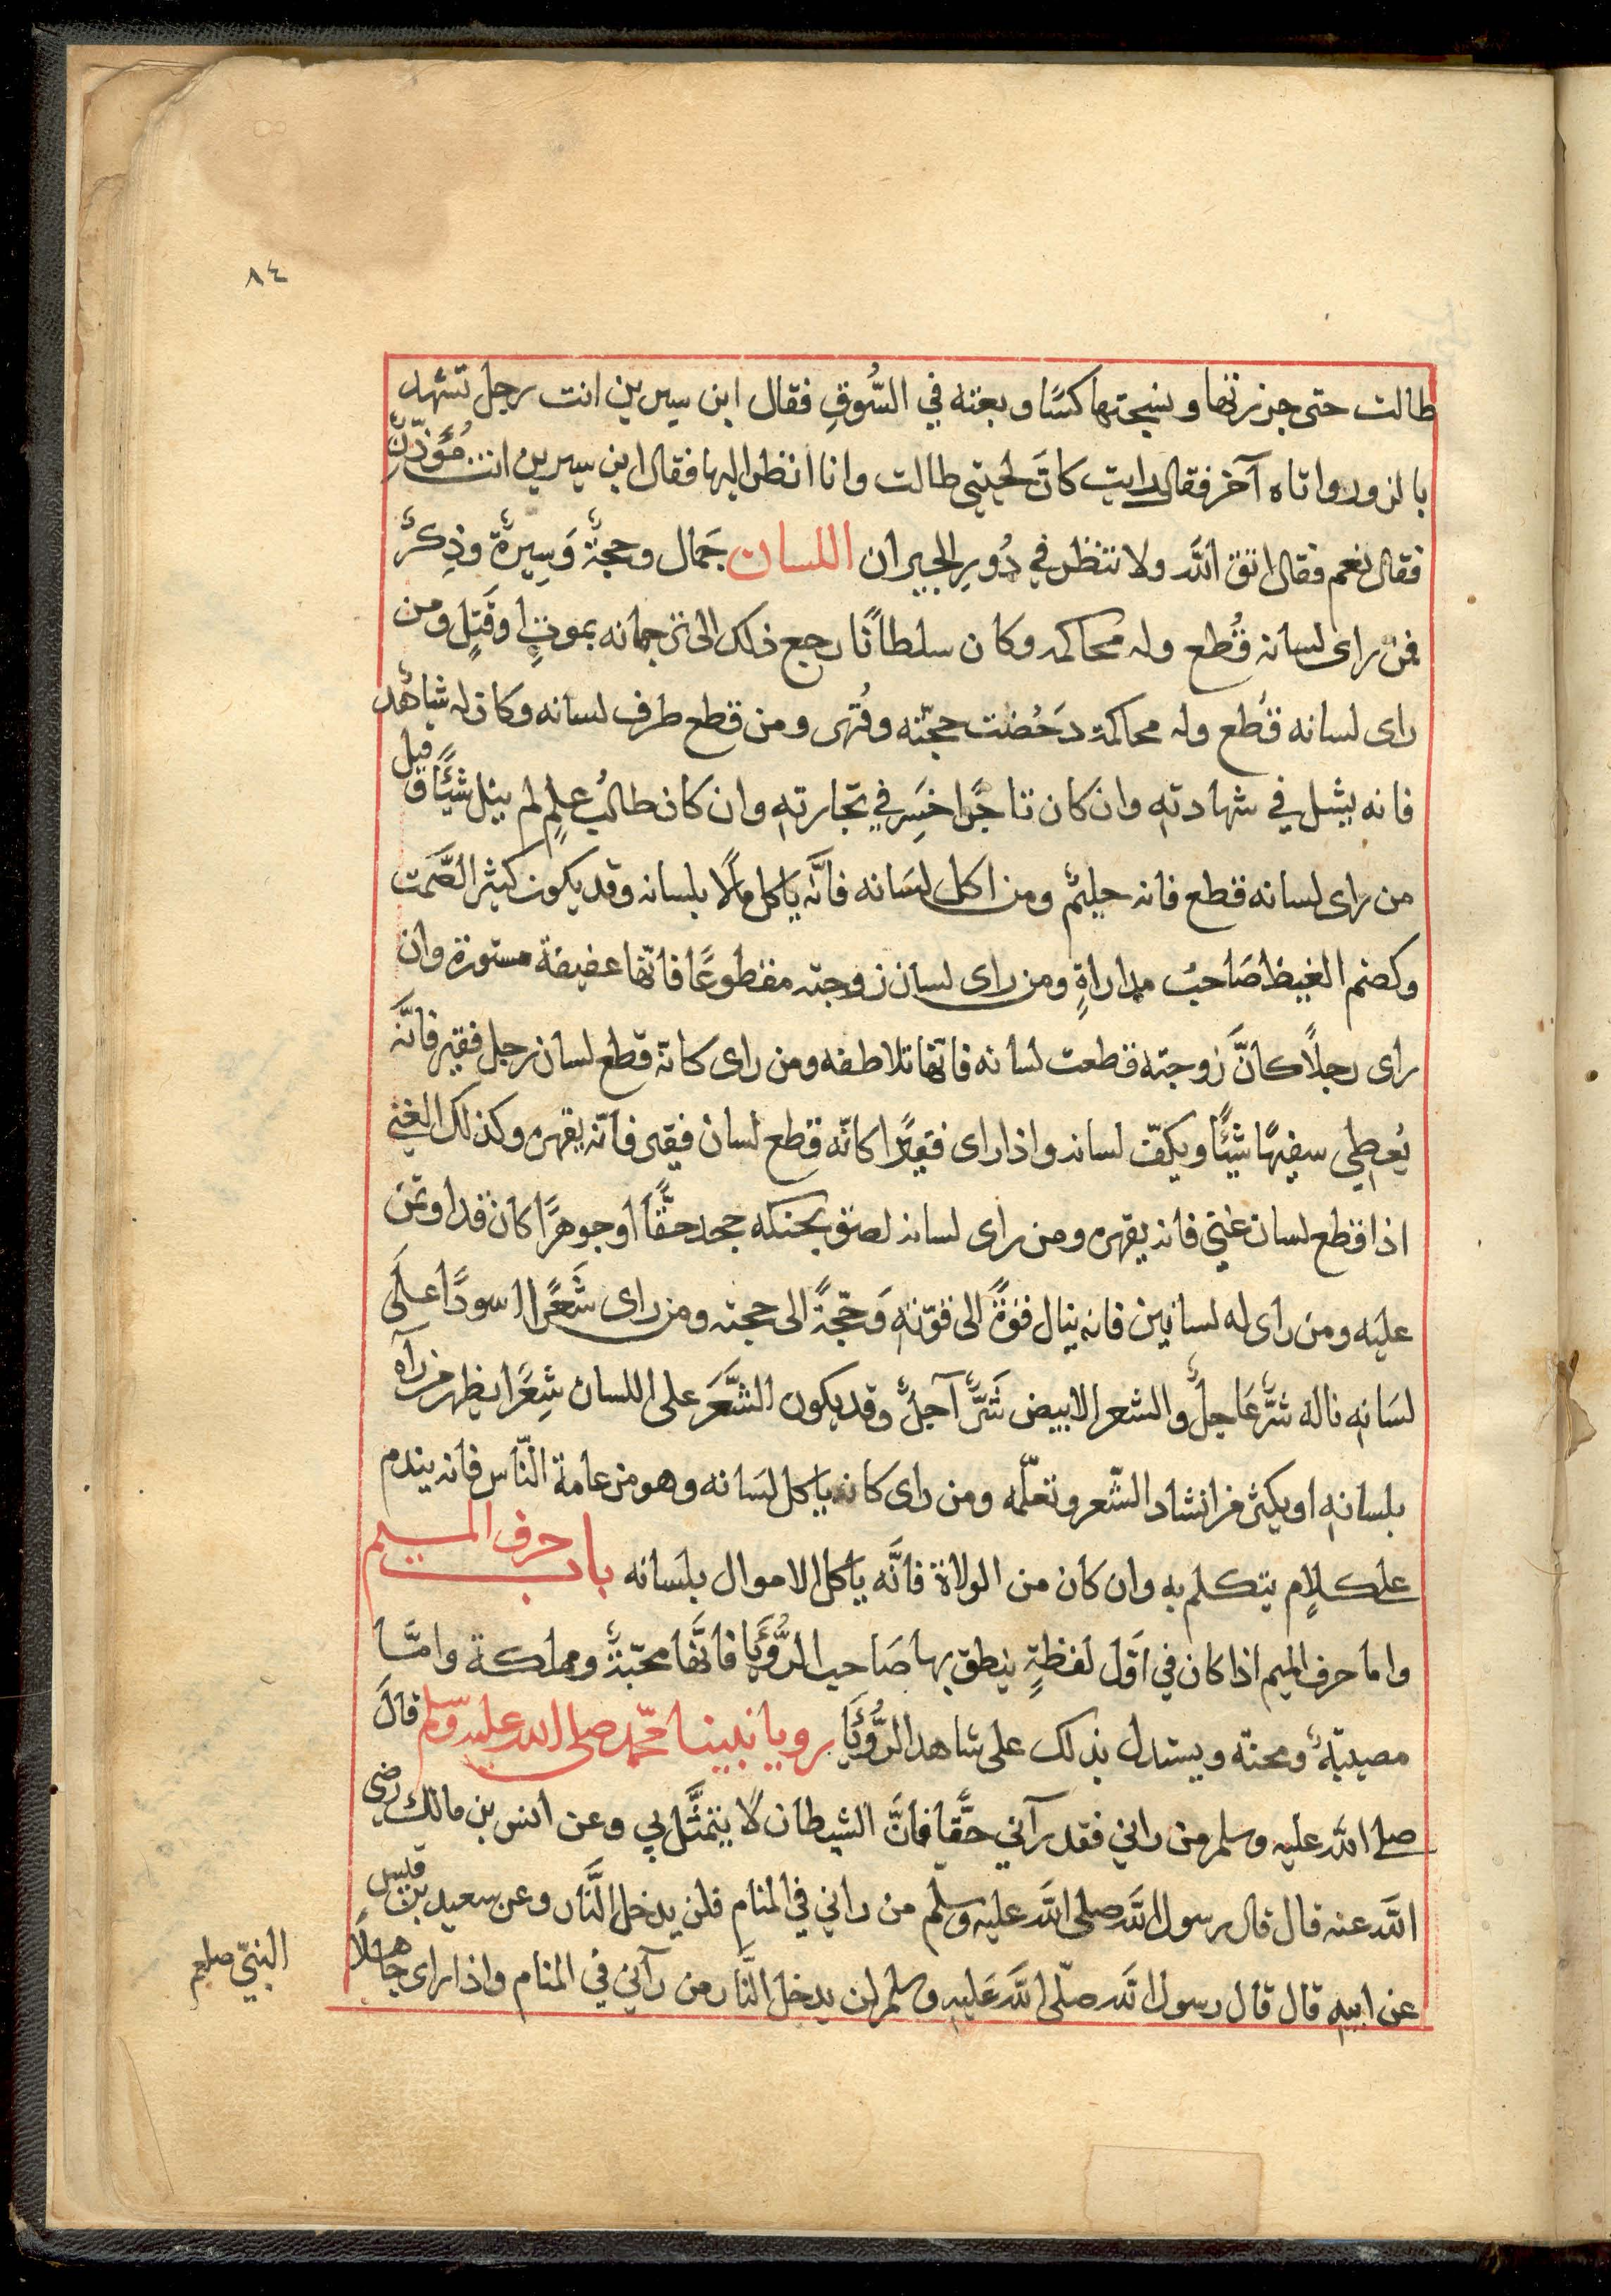 ٨٤
طالت حتى جززتها ونسجتها كسًا وبعته في السُّوقِ فقال ابن سيرين انت رجل تشهد
بالزور واتاه آخر فقال رايت كانَّ لحيتي طالت وانا انظر اليها فقال ابن سيرين انت مُؤَذِّنٌ
فقال نعم فقال اتق اللَّه ولا تنظر في دُورِ الجيران اللسان جَمال وحجةٌ وَسِيرةٌ وذِكرٌ
فمن راى لسانه قُطع وله محاكمه وكان سلطانًا رجع ذلك الى ترجمانه بموتٍ اوقَتلٍ ومن
راى لسانه قُطع وله محاكمة دَحُضت حجّته وقُهر ومن قطع طرف لسانه وكان له شاهدٌ
فانه يشل في شهادتهِ وان كان تاجرًا خسِر في تجارتهِ وان كان طالبُ علمٍ لم ينل شيئًا وقيل
من راى لسانه قطع فانه حليمٌ ومن اكل لسَانه فانَّه ياكل مالًا بلسانه وقد يكون كثير الصَّمت
وكضم الغيظ صَاحبُ مداراةٍ ومن راى لسان زوجته مقطوعًا فانّها عفيفة مستورة وان
راى رجلًا كانَّ زوجته قطعت لسانه فانها تلاطفه ومن راى كانه قطع لسان رجل فقير فانَّه
يُعطِي سفيهًا شيئًا ويكفّ لسانه واذا راى فقيرًا كانّه قطع لسان فيقير فانّه يقهره وكذلك الغني
اذا قطع لسان غنيّ فانه يقهره ومن راى لسانه لصق بحنكه جحد حقًّا اوجوهرًا كان قد اوتمن
عليه ومن راى له لسانين فانه ينال قوةً الى قوّتهِ وَحجّةً الى حجته ومن راى شَعرًا اسودًا علَى
لسَانهِ ناله شرٌّ عَاجلٌ والشعر الابيض شَرٌّ آجلٌ وقد يكون الشَّعَر على اللسان شِعرًا يظهر من رآه
بلسانهِ او يكثر من انشاد الشّعر وتعلّمه ومن راى كانه ياكل لسَانه وهو من عامة النّاس فانه يندم
على كلامٍ يتكلم به وان كان من الولاة فانَّه ياكل الاموال بلسانه باب حرف الميم
واما حرف الميم اذا كان في اوَّل لفظةٍ ينطق بها صَاحب الرُّؤيَا فانَّها محبّةٌ ومملكة وامَّا
مصيبةٌ ومحنة ويستدل بذلك على شاهد الرُّؤيَا رويا نبينا محمّد صلى الله عليه وسلم قالَ
صلى اللَّه عليه وسلم من راني فقد رآني حقًّا فانَّ الشيطان لا يتمثَّل بي وعن انس بن مالك رضي
اللَّه عنه قال قال رسول اللَّه صلى اللَّه عليه وسلم من راني في المنامِ فلن يدخل النَّار وعن سعيد بن قيس
عن ابيهِ قال قال رسول اللَّه صلّى اللَّه عَليهِ وسلم لن يدخل النَّار من رآني في المنام واذا راى جاهلًا
النبيّ صلعم